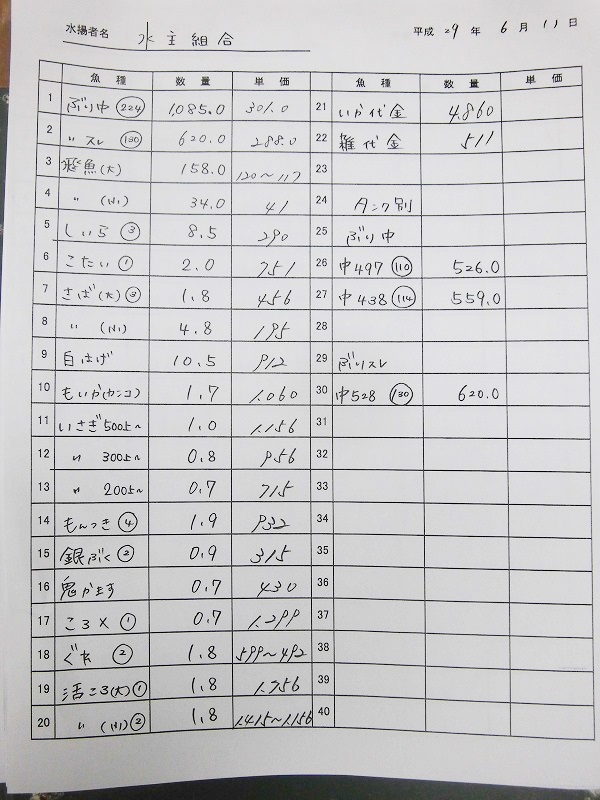 水揚者名 水主組合
平成 29 年 6 月 11 日
魚種 数量 単価
1 ぶり中 (224) 1,085.0 301.0
2 〃 スレ (130) 620.0 288.0
3 飛魚(大) 158.0 120～117
4 〃 (小) 34.0 41
5 しいら (3) 8.5 290
6 こたい (1) 2.0 751
7 さば(大) (3) 1.8 456
8 〃 (小) 4.8 195
9 白はげ 10.5 912
10 もいか(カンコ) 1.7 1.060
11 いさぎ 500上～ 1.0 1.156
12 〃 300上～ 0.8 956
13 〃 200上～ 0.7 715
14 もんつき (4) 1.9 932
15 銀ふぐ (2) 0.9 315
16 鬼かます 0.7 430
17 コロメ (1) 0.7 1.299
18 ぐれ (2) 1.8 599～492
19 活ころ(大) (1) 1.8 1.756
20 〃 (小) (2) 1.8 1.415～1.156
魚種 数量 単価
21 いか代金 4.860
22 雑代金 511
23
24 タンク別
25 ぶり中
26 中497 (110) 526.0
27 中438 (114) 559.0
28
29 ぶりスレ
30 中528 (130) 620.0
31
32
33
34
35
36
37
38
39
40